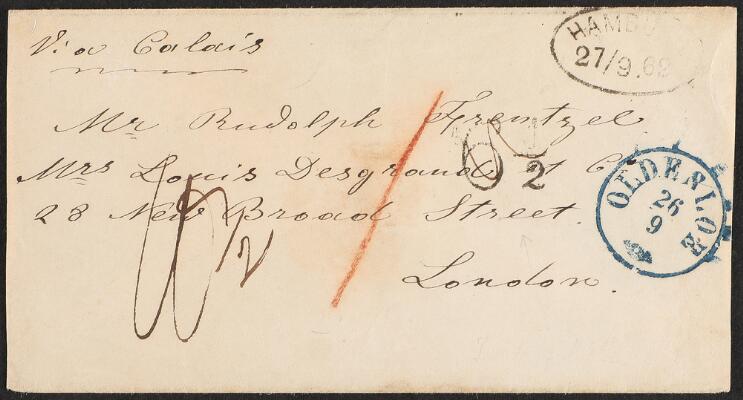 Via Calais
HAMBU
27/9.62
Mr Rudolph Frentzel
Mrs Louis Desgrand & Co
28 New Broad Street.
London.
2
OLDESLOE
26
9